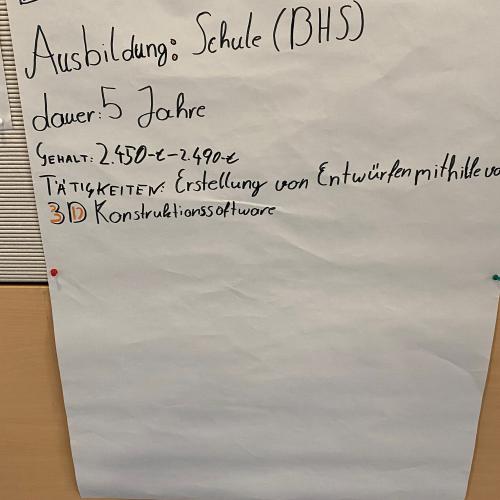 Ausbildung: Schule (BHS)
dauer: 5 Jahre
GEHALT: 2.450-€-2.490-€
TÄTIGKEITEN: Erstellung von Entwürfen mithilfe vo
3D Konstruktionssoftware